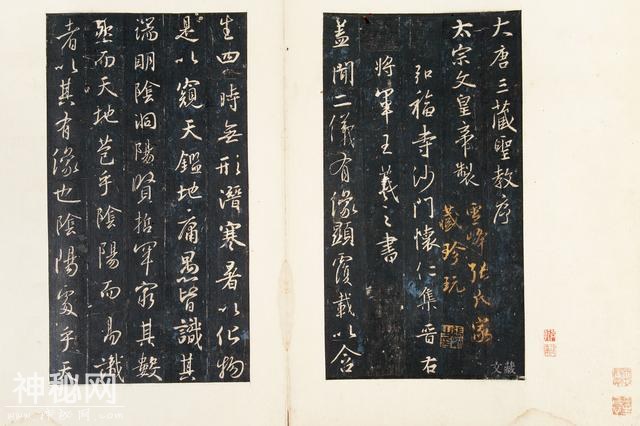 大唐三藏聖教序
太宗文皇帝製
弘福寺沙門懷仁集晉右
將軍王羲之書
蓋聞二儀有像顯覆載以含
生四時無形潛寒暑以化物
是以窺天鑑地庸愚皆識其
端明陰洞陽賢哲罕窮其數
然而天地苞乎陰陽而易識
者以其有像也陰陽處乎天
雪峰張氏家
藏珍玩
藏文
神秘网